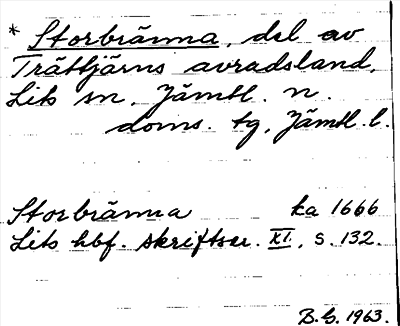 * Storbränna, del av
Trättjärns avradsland,
Lits sn, Jämtl. n.
doms. tg, Jämtl. l.
Storbränna ka 1666
Lits hbf. skriftser. XI, s. 132.
B.G. 1963.